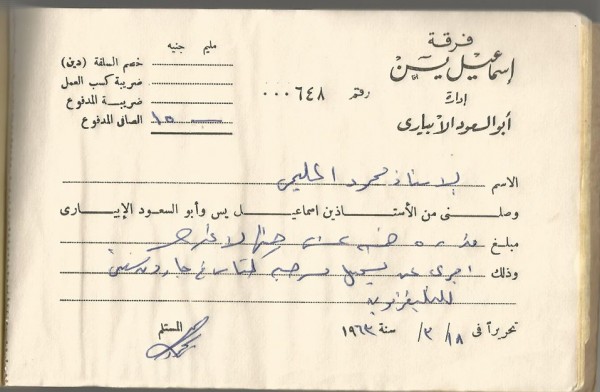 فرقة
اسماعيل يسن
إدارة
أبو السعود الأبيارى
رقم ٠٠٠٦٤٨
مليم جنيه
خصم السلفة (دين)
ضريبة كسب العمل
ضريبة المدفوع
الصافى المدفوع ١٥ —
الاسم الاستاذ محمود المليجى
وصلنى من الأستاذين اسماعيل يس وأبو السعود الإبيارى
مبلغ قدره خمسة عشر جنيها لا غير
وذلك اجرى عن تسجيل مسرحية
للتليفزيون
تحريراً فى ١٨/ ٣/ سنة ١٩٦٣
المستلم